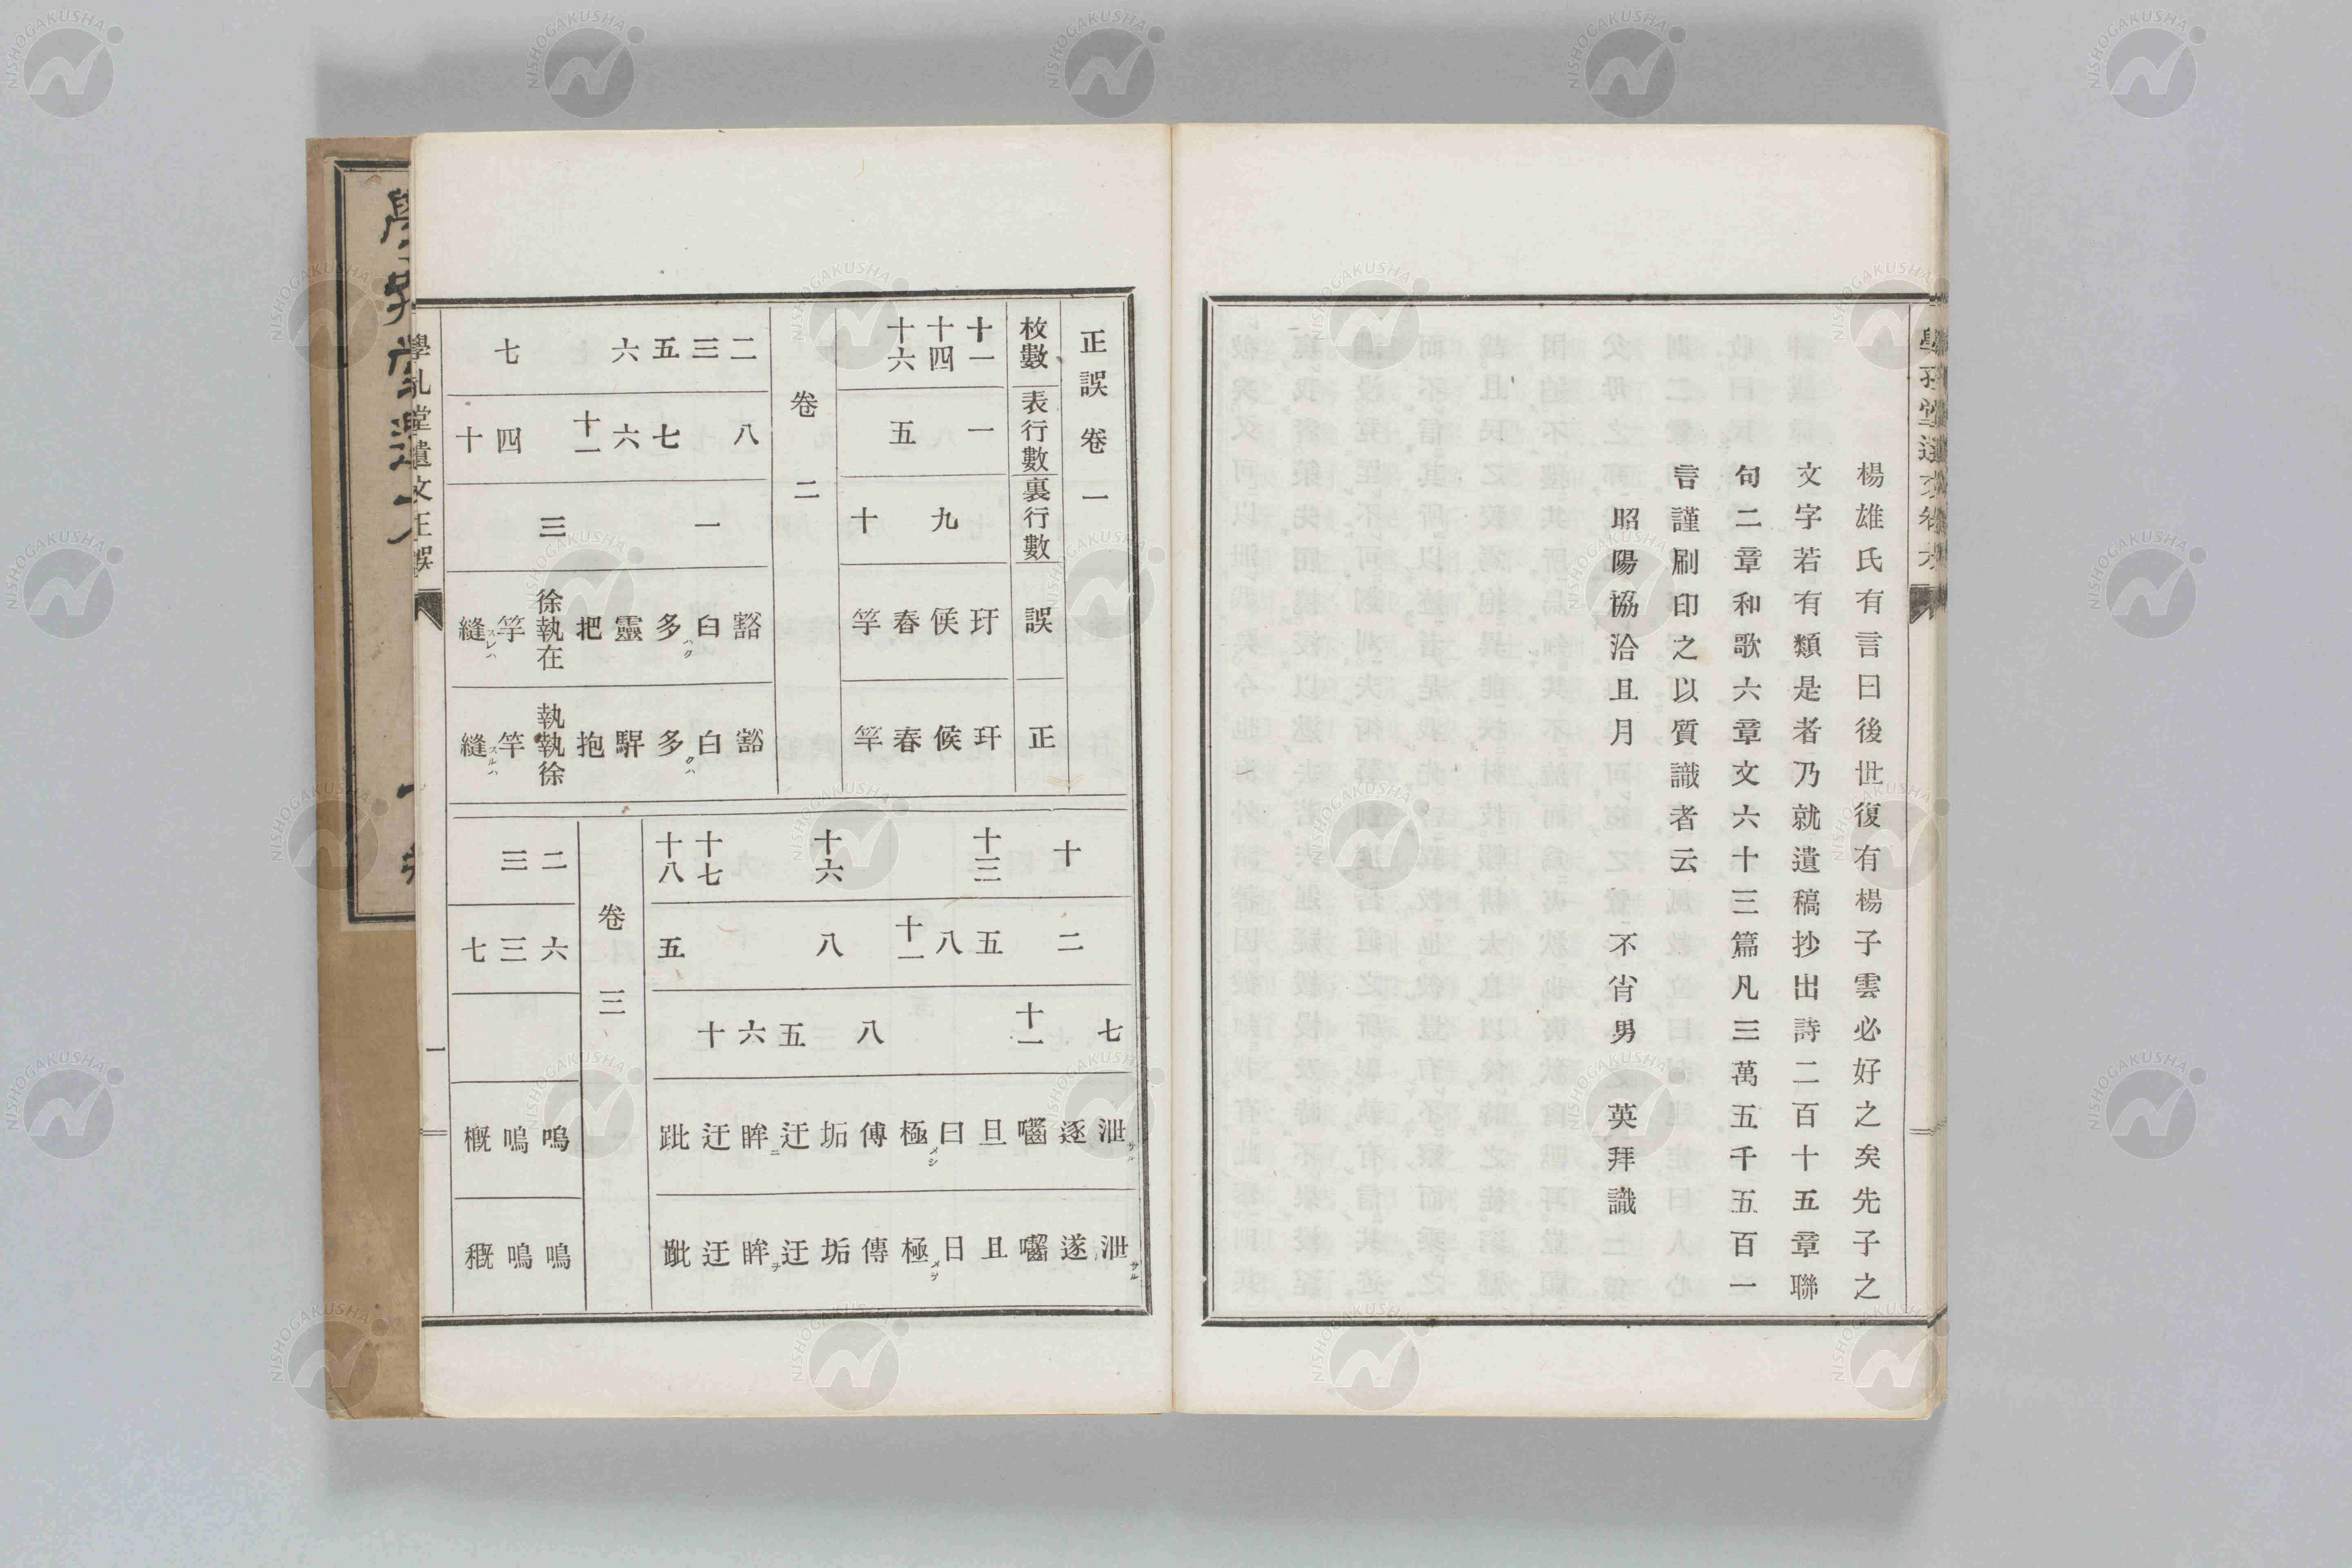 楊雄氏有言曰後世復有楊子雲必好之矣先子之
文字若有類是者乃就遺稿抄出詩二百十五章聯
句二章和歌六章文六十三篇凡三萬五千五百一
言謹刷印之以質識者云
昭陽協洽且月 不肖男 英拜識
正誤卷一
枚數 表行數 裏行數 誤 正
十一 一 玗 玕
十四 九 候 候
十六 五 春 春
十 竽 竿
卷二
二 八 豁 豁
三 一 臼 白
五 七 多ハク 多クハ
六 六 靈 騂
十一 把 抱
三 徐執在 執執徐
七 四 竽 竿
十 縫スレハ 縫スルハ
七 泄サル 泄サル
十 二 逐 遂
十一 囓 囓
十三 五 旦 且
八 曰 日
十一 極メシ 極メテ
八 傅 傳
十六 八 垢 垢
五 迂 迂
六 眸ニ 眸ヲ
十七 十 迂 迂
十八 五 跐 齜
卷三
二 六 嗚 鳴
三 三 嗚 鳴
七 概 穊
學孔堂遺文正誤 一
NISHOGAKUSHA